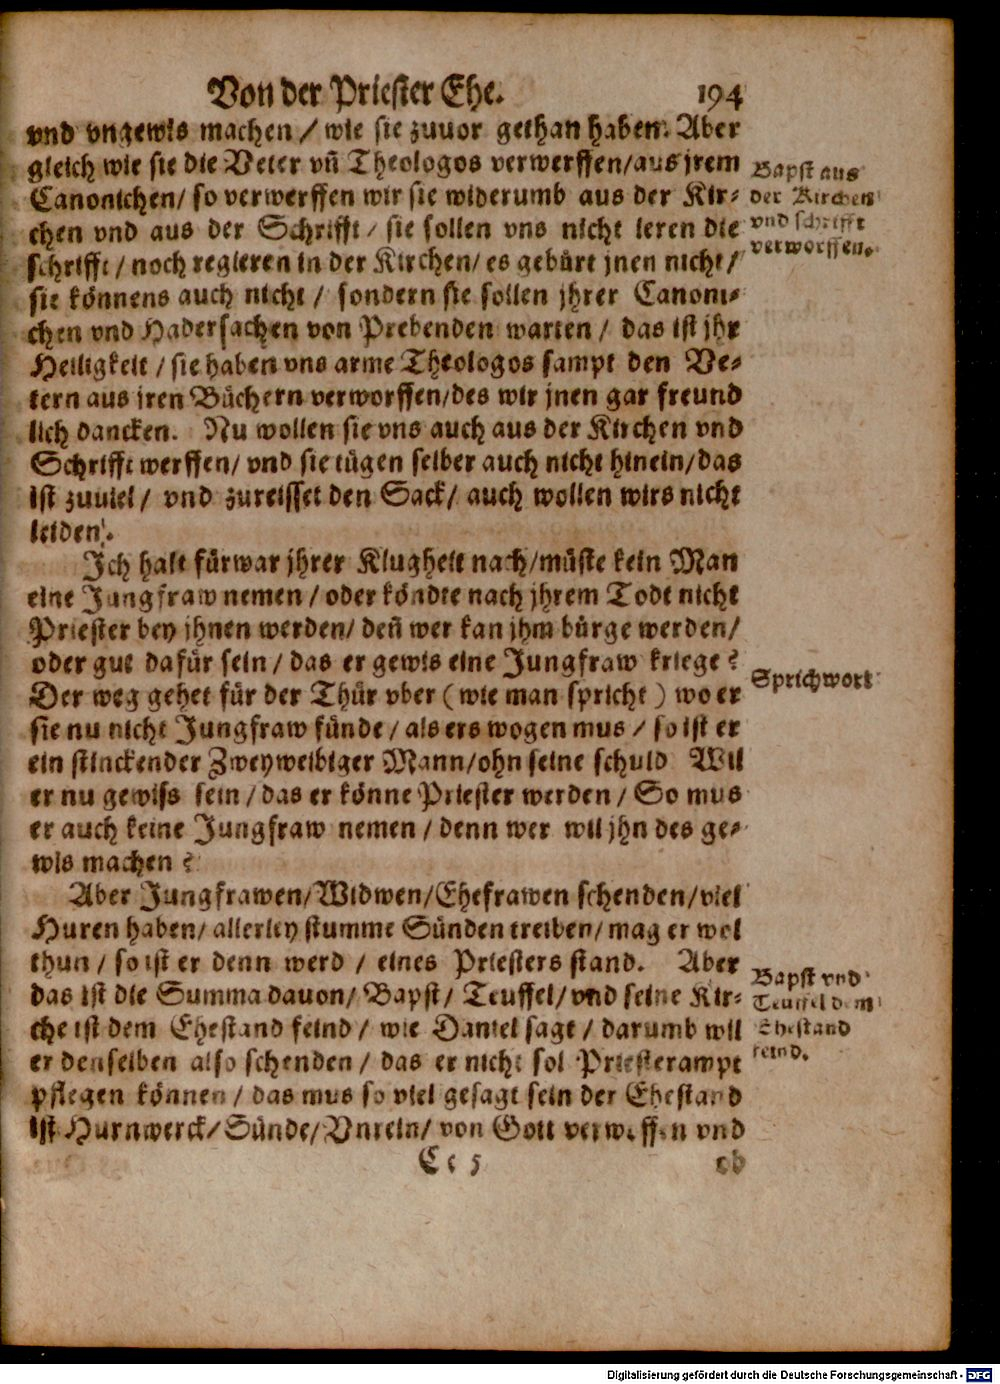 Von der Priester Ehe. 194
vnd vngewis machen / wie sie zuuor gethan haben. Aber
gleich wie sie die Veter vñ Theologos verwerffen/aus jrem
Canonichen/ so verwerffen wir sie widerumb aus der Kir-
chen vnd aus der Schrifft / sie sollen vns nicht leren die
schrifft / noch regieren in der Kirchen/ es gebürt jnen nicht/
sie könnens auch nicht / sondern sie sollen jhrer Canoni-
chen vnd Hadersachen von Prebenden warten / das ist jhr
Heiligkeit / sie haben vns arme Theologos sampt den Ve-
tern aus jren Büchern verworffen/des wir jnen gar freund
lich dancken. Nu wollen sie vns auch aus der Kirchen vnd
Schrifft werffen/ vnd sie tügen selber auch nicht hinein/das
ist zuuiel / vnd zureisset den Sack/ auch wollen wirs nicht
leiden.
Bapst aus
der Kirchen
vnd schrifft
verworffen.
Ich halt fürwar jhrer Klugheit nach/müste kein Man
eine Jungfraw nemen / oder köndte nach jhrem Todt nicht
Priester bey jhnen werden/ deñ wer kan jhm bürge werden/
oder gut dafür sein / das er gewis eine Jungfraw kriege?
Der weg gehet für der Thür vber ( wie man spricht ) wo er
sie nu nicht Jungfraw fünde / als ers wogen mus / so ist er
ein stinckender Zweyweibiger Mann/ohn seine schuld Wil
er nu gewiss sein / das er könne Priester werden / So mus
er auch keine Jungfraw nemen / denn wer wil jhn des ge-
wis machen?
Sprichwort
Aber Jungfrawen/Widwen/Ehefrawen schenden/viel
Huren haben/ allerley stumme Sünden treiben/ mag er wol
thun / so ist er denn werd / eines Priesters stand. Aber
das ist die Summa dauon/ Bapst/ Teuffel/vnd seine Kir-
che ist dem Ehestand feind / wie Daniel sagt / darumb wil
er denselben also schenden / das er nicht sol Priesterampt
pflegen können / das mus so viel gesagt sein der Ehestand
ist Hurnwerck/ Sünde/ Vnrein/ von Gott verworffen vnd
Bapst vnd
Teuffel dem
Ehestand
feind.
Cc 5 ob
Digitalisierung gefördert durch die Deutsche Forschungsgemeinschaft - DFG